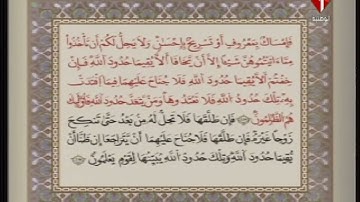 الوطنية
فَإِمْسَاكٌ بِمَعْرُوفٍ أَوْ تَسْرِيحٌ بِإِحْسَٰنٍ وَلَا يَحِلُّ لَكُمْ أَن تَأْخُذُوا
مِمَّا ءَاتَيْتُمُوهُنَّ شَيْـًٔا إِلَّآ أَن يَخَافَآ أَلَّا يُقِيمَا حُدُودَ ٱللَّهِ فَإِنْ
خِفْتُمْ أَلَّا يُقِيمَا حُدُودَ ٱللَّهِ فَلَا جُنَاحَ عَلَيْهِمَا فِيمَا ٱفْتَدَتْ
بِهِۦ تِلْكَ حُدُودُ ٱللَّهِ فَلَا تَعْتَدُوهَا وَمَن يَتَعَدَّ حُدُودَ ٱللَّهِ فَأُو۟لَٰٓئِكَ
هُمُ ٱلظَّٰلِمُونَ فَإِن طَلَّقَهَا فَلَا تَحِلُّ لَهُۥ مِنۢ بَعْدُ حَتَّىٰ تَنكِحَ
زَوْجًا غَيْرَهُۥ فَإِن طَلَّقَهَا فَلَا جُنَاحَ عَلَيْهِمَآ أَن يَتَرَاجَعَآ إِن ظَنَّآ أَن
يُقِيمَا حُدُودَ ٱللَّهِ وَتِلْكَ حُدُودُ ٱللَّهِ يُبَيِّنُهَا لِقَوْمٍ يَعْلَمُونَ